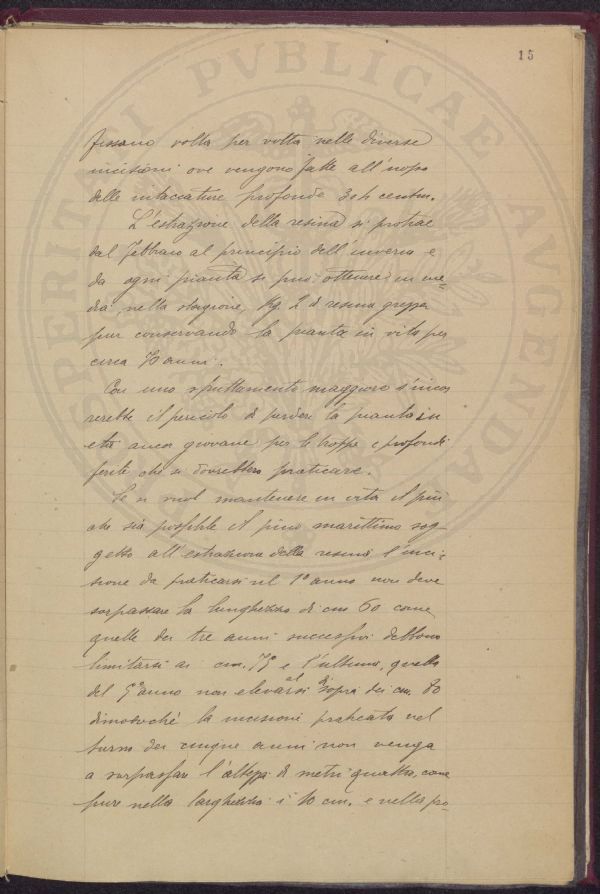 15
fissano volta per volta nelle diverse
incisioni ove vengono fatte all'uopo
delle intaccature profonde 3 o 4 centm.
L'estrazione della resina si protrae
dal Febbraio al principio dell'inverno e
da ogni pianta si può ottenere in me-
dia, nella stagione, Kg. 2 di resina greggia
pur conservando la pianta in vita per
circa 70 anni.
Con uno sfruttamento maggiore s'incor
rerebbe il pericolo di perdere la pianta in
età ancor giovane per le troppe e profonde
ferite che si dovrebbero praticare.
Se si vuol mantenere in vita il più
che sia possibile il pino marittimo sog-
getto all'estrazione della resina l'inci-
sione da praticarsi nel 1° anno non deve
sorpassare la lunghezza di cm 60 come
quelle dei tre anni successivi debbono
limitarsi ai cm. 75 e l'ultima, quella
del 5° anno non elevarsi al di sopra dei cm. 80
dimodochè la incisioni praticata nel
turno dei cinque anni non venga
a sorpassare l'altezza di metri quattro, come
pure nella larghezza i 10 cm. e nella pro-
PERITAI PVBLICAE AVGENDAE